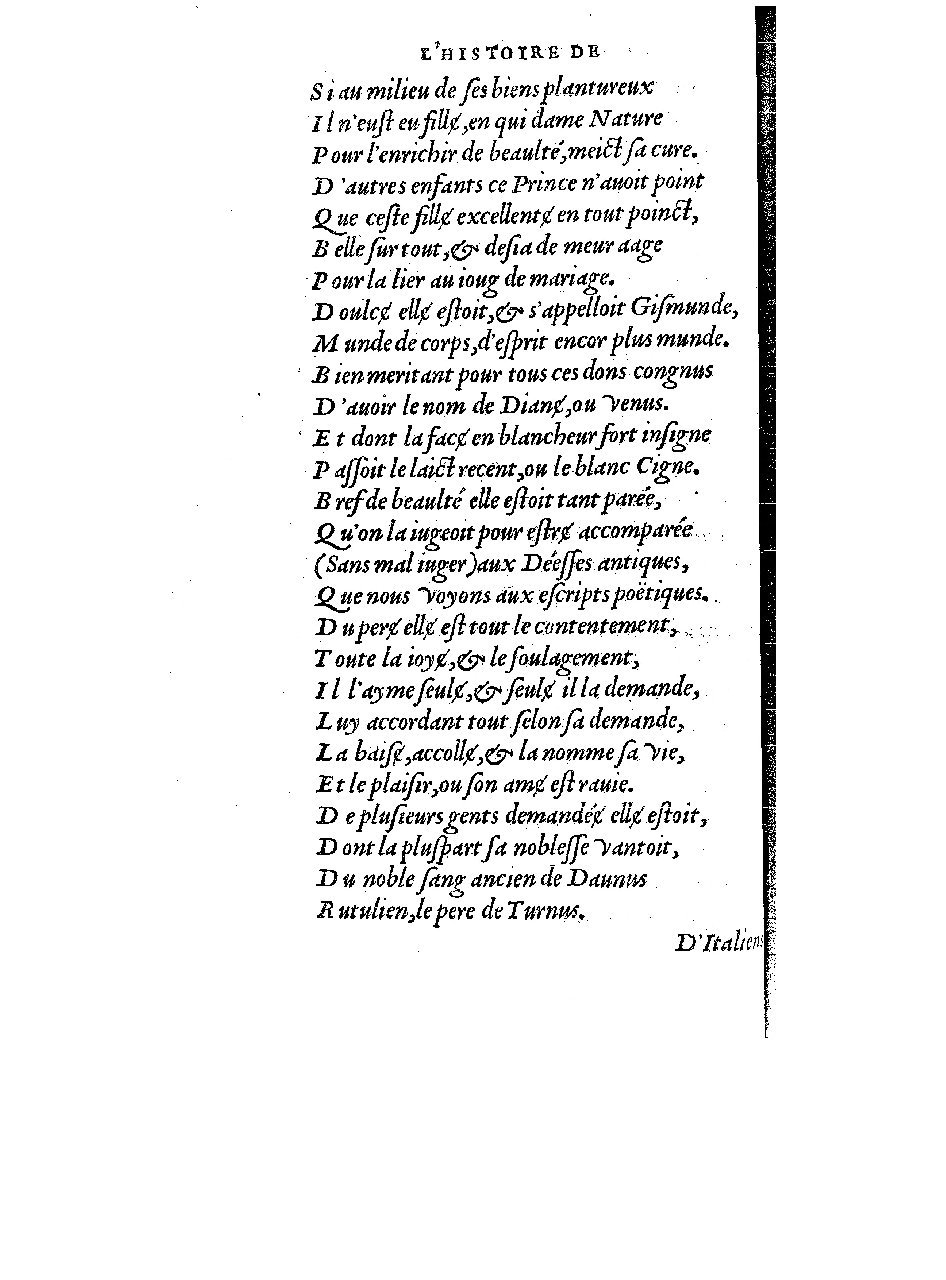 L'HISTOIRE DE
Si au milieu de ſes biens plantureux
Il n'euſt eu fillɇ, en qui dame Nature
Pour l'enrichir de beaulté, meict ſa cure.
D'autres enfants ce Prince n'auoit point
Que ceſte fillɇ excellentɇ en tout poinct,
Belle ſur tout, & deſia de meur aage
Pour la lier au ioug de mariage.
Doulcɇ ellɇ eſtoit, & s'appelloit Giſmunde,
Munde de corps, d'eſprit encor plus munde.
Bien meritant pour tous ces dons congnus
D'auoir le nom de Dianɇ, ou Venus.
Et dont la facɇ en blancheur fort inſigne
Paſſoit le laict recent, ou le blanc Cigne.
Bref de beaulté elle eſtoit tant parée,
Qu'on la iugeoit pour eſtrɇ accomparée
(Sans mal iuger) aux Déeſſes antiques,
Que nous voyons aux eſcripts poëtiques.
Du perɇ ellɇ eſt tout le contentement,
Toute la ioyɇ, & le ſoulagement,
Il l'ayme ſeulɇ, & ſeulɇ il la demande,
Luy accordant tout ſelon ſa demande,
La baiſɇ, accollɇ, & la nomme ſa vie,
Et le plaiſir, ou ſon amɇ eſt rauie.
De pluſieurs gents demandéɇ ellɇ eſtoit,
Dont la pluſpart ſa nobleſſe vantoit,
Du noble ſang ancien de Daunus
Rutulien, le pere de Turnus.
D'Italiens